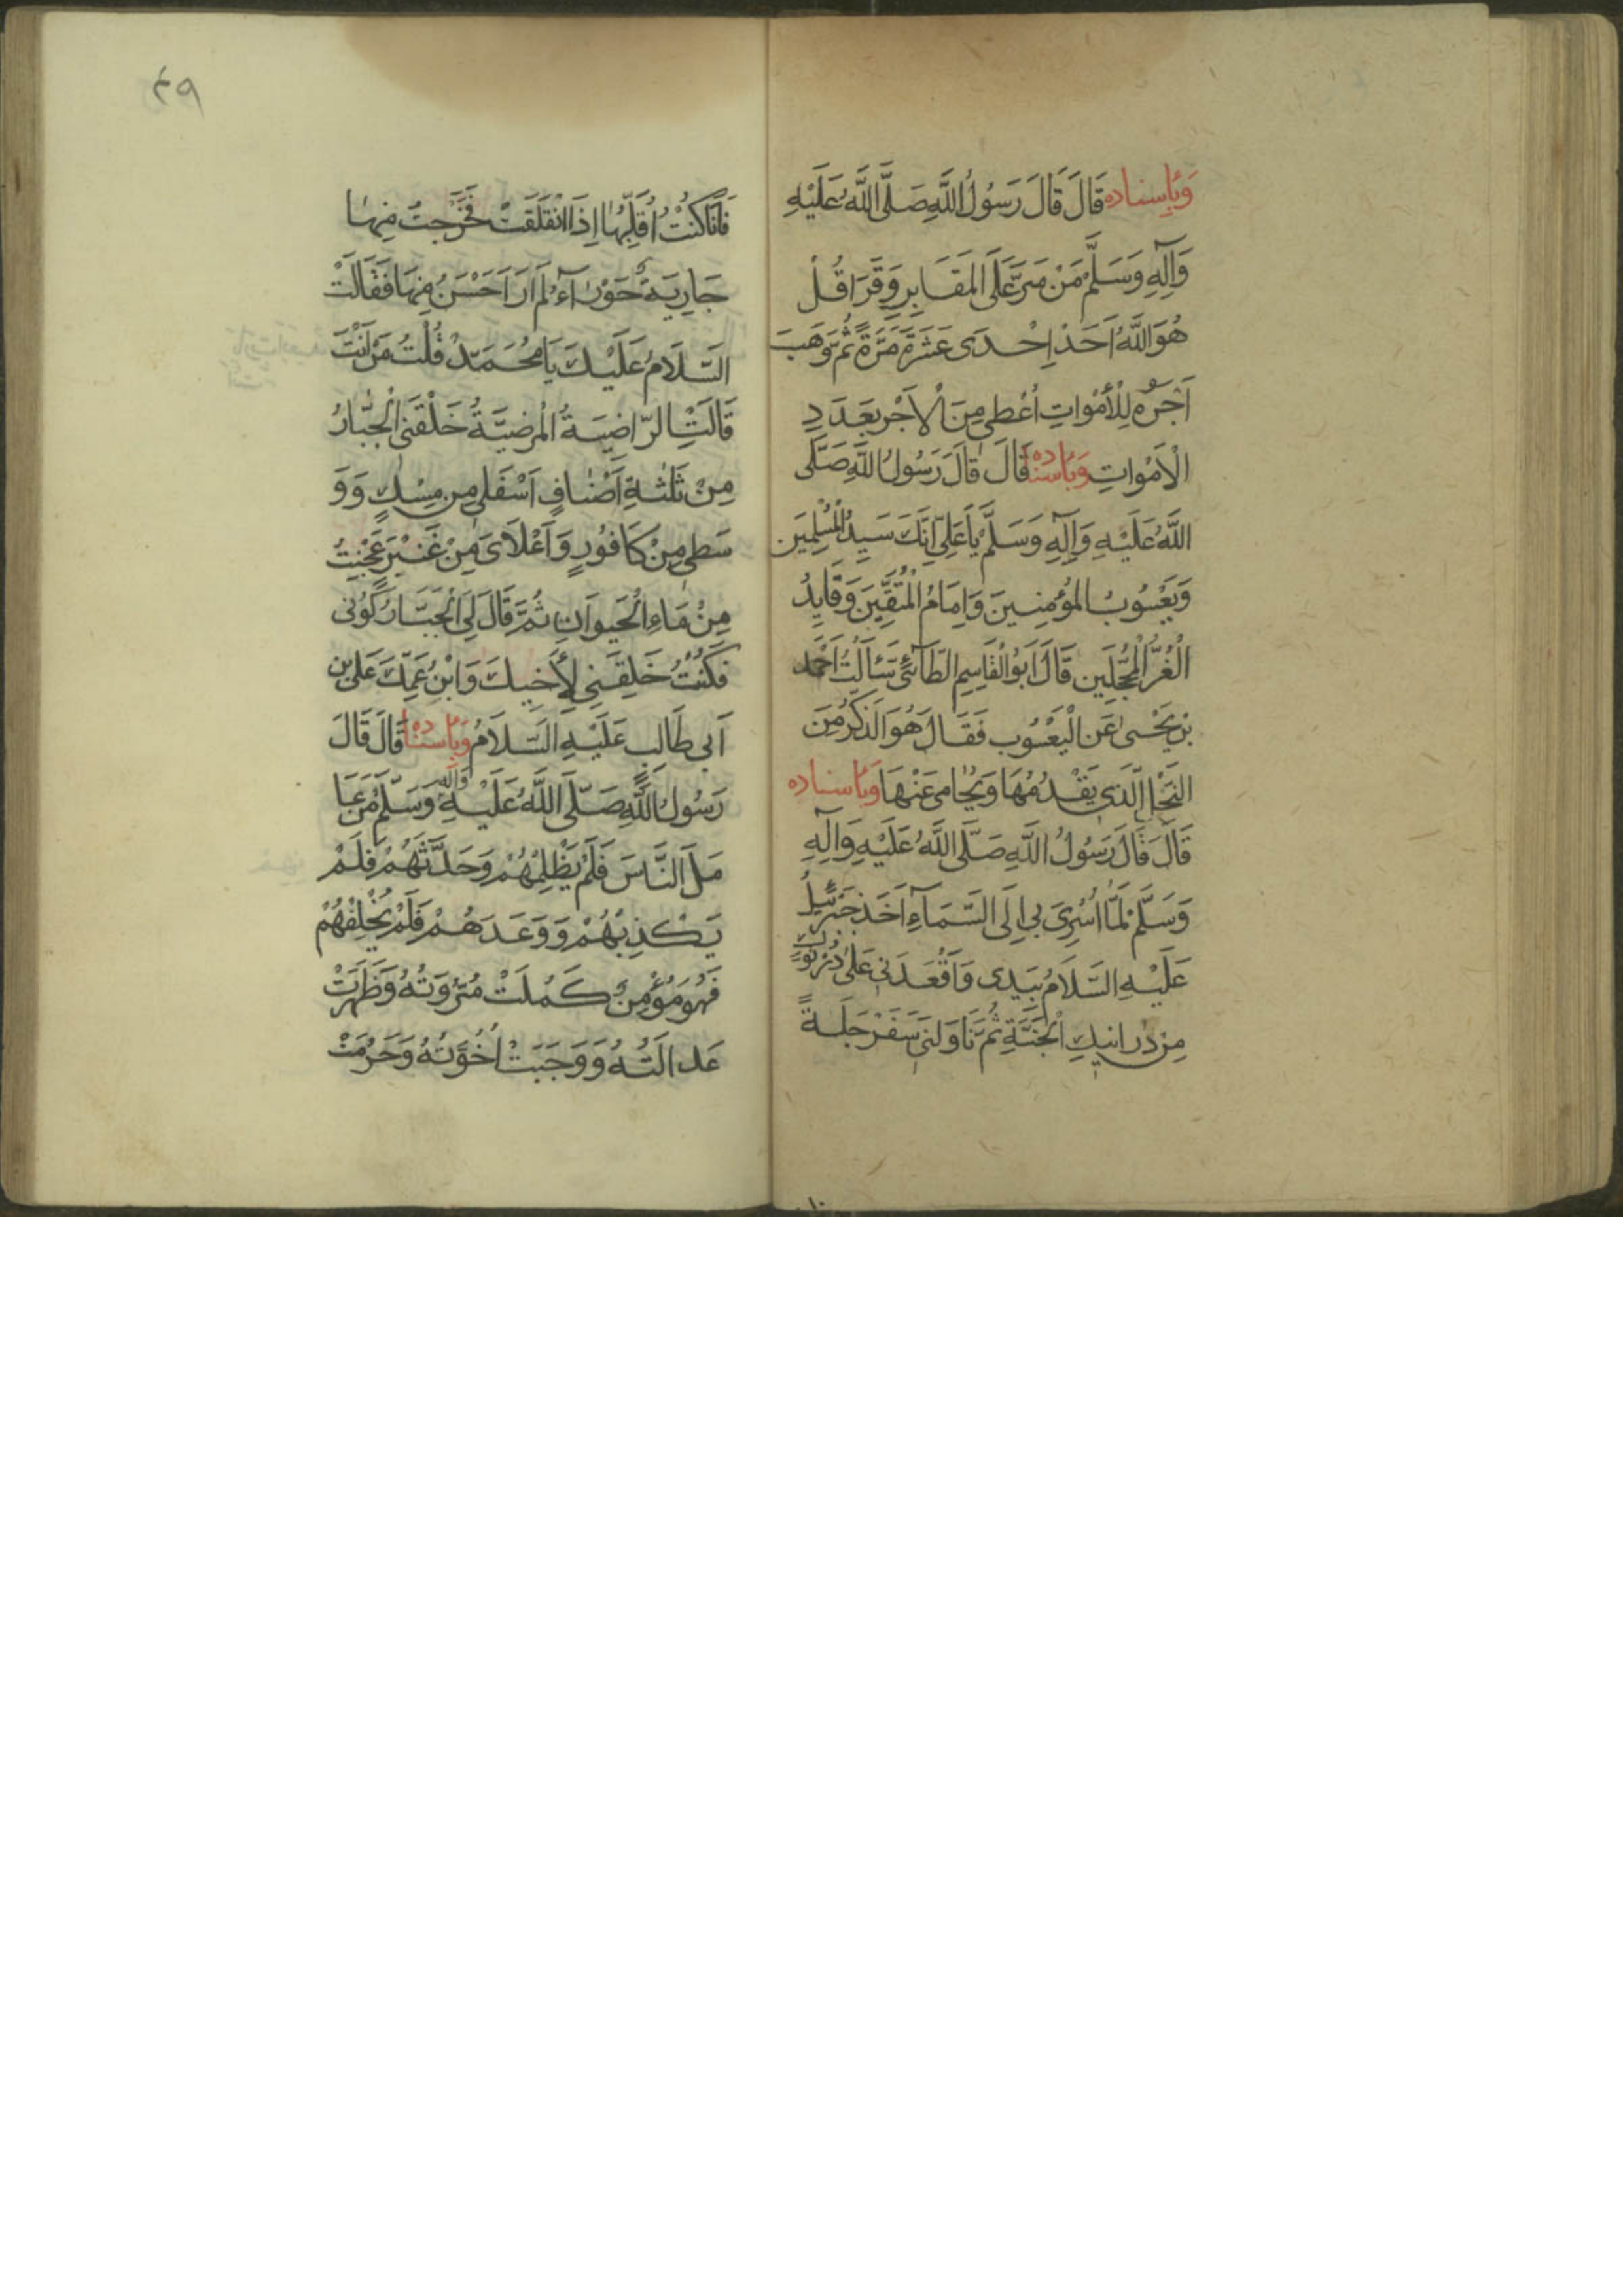 وَبِاِسناده قَالَ قَالَ رَسُولُ اللَّهِ صَلَّى اللَّهُ عَلَيْهِ
وَآلِهِ وَسَلَّمَ مَنْ مَرَّ عَلَى المَقَابِرِ وَقَرَا قُلْ
هُوَ اللَّهُ اَحَدْ اِحْدَى عَشَرَةَ مَرَّةً ثُمَّ وَهَبَ
اَجْرَهُ لِلْأَمْوَاتِ اُعْطِيَ مِنَ الْاَجْرِ بِعَدَدِ
الْاَمْوَاتِ وَبِاسناده قَالَ قَالَ رَسُولُ اللَّهِ صَلَّى
اللَّهُ عَلَيْهِ وَآلِهِ وَسَلَّمَ يَا عَلِيُّ اِنَّكَ سَيِّدُ الْمُسْلِمِيَن
وَيَعْسُوبُ المُؤمِنِينَ وَاِمَامُ الْمُتَّقِينَ وَقَايِدُ
الْغُرِّ الْمُحَجَّلِين قَالَ اَبُو الْقَاسِمِ الطَّآئىُّ سَئَالْتُ اَحْمَد
بْن يَحْيىٰ عَنِ الْيَعْسُوبِ فَقَالَ هُوَ الَذَكَرُ مِنَ
النَحْلِ الَّذى يَقْدُمُهَا وَيُحَامى عَنْهَا وَبِاسناده
قَالَ قَالَ رَسُولُ اللَّهِ صَلَّى اللَّهُ عَلَيْهِ وَآلِهِ
وَسَلَّمْ لَمَّا اُسْرِىَ بى اِلَى السَّمَآءِ اَخَذَ جَبْرَئيلُ
عَلَيْهِ السَّلَامُ بِيَدى وَاَقْعَدَنى عَلىٰ دُرْنُوكٍ
مِنْ دَرَانيكِ الْجَنَّةِ ثُمَّ نَاوَلَنى سَفَرْجَلَةً
۴۹
فَاَنَا كُنْتُ اُقَلِّبُهَا اِذَا انْفَلَقَتْ فَخَرَجَتْ مِنهَا
جَارِيَةٌ حَوْرَآءُ لَمْ اَرَ اَحْسَنُ مِنهَا فَقَالَتْ
السَّلَامُ عَلَيْكَ يَا مُحَمَدْ قُلْتُ مَنْ اَنْتَ
قَالَتْ الرَّاضِيَةُ الْمَرْضِيَّةُ خَلَقَنى الْجَبَّارُ
مِنْ ثَلٰثَةِ اَصْنَافٍ اَسْفَلى مِن مِسْكٍ وَوَ
سَطى مِنْ كَافُورٍ وَاَعْلَاىَ مِنْ عَنْبَرٍ عُجِنْتُ
مِنْ مَاءِ الْحَيوَانِ ثُمَّ قَالَ لِىَ الْجَبَّارُ كُونى
فَكُنْتُ خَلَقَنِى لِأَخِيكَ وَابْنِ عَمِّكَ عَلى بْنِ
اَبى طَالِبٍ عَلَيْهِ السَّلَامُ وَبِاسناده قَالَ قَالَ
رَسُولُ اللَّهِ صَلَّى اللَّهُ عَلَيْهِ وَآلِهِ وَسَلَّمَ مَنْ عَا
مَلَ النَّاسَ فَلَمْ يَظْلِمْهُمْ وَحَدَّثَهُمْ فَلَمْ
يَكْذِبْهُمْ وَوَعَدَهُمْ فَلَمْ يُخْلِفْهُمْ
فَهُوَ مُؤْمِنٌ كَمُلَتْ مُرُوَتُهُ وَظَهَرَتْ
عَدَالَتُهُ وَوَجَبَتْ اُخُوَّتُهُ وَحَرُمَتْ